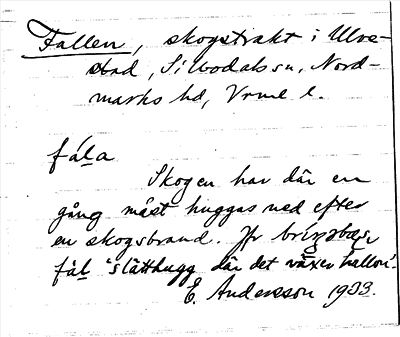 Fallen, skogstrakt i Ulve-
stad, Silbodals sn, Nord-
marks hd, Vrml l.
fála
Skogen har där en
gång måst huggas ned efter
en skogsbrand. Jfr
fàl̲ 'slätthugg där det växer hallon'.
E. Andersson 1933.